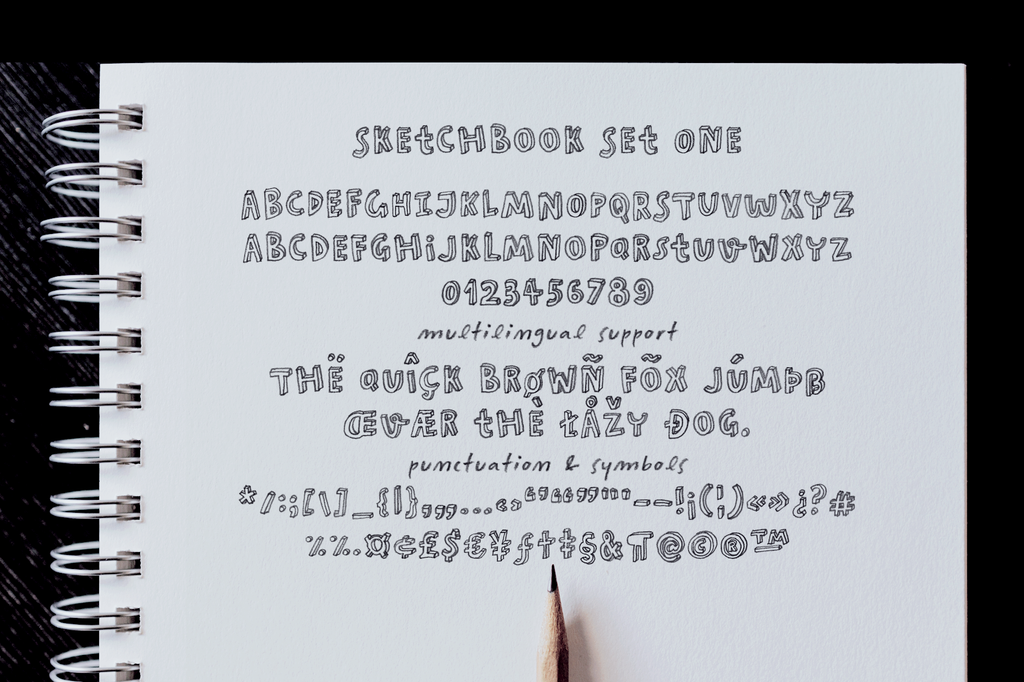 SKEtCHBOOK SEt ONE
ABCDEFGHIJKLMNOPQRSTUVWXYZ
ABCDEFGHiJKLMNOPQRStUVWXYZ
0123456789
multilingual support
THË QUÎÇK BRØWÑ FÕX JÚMÞß
ŒVÆR tHÈ ŁÅŽY ĐOG.
punctuation & symbols
*/:;[\]_{|}‚„,...‹›“‘“”’"'–—!¡(¦)«»¿?#
⁒%.¤¢£$€¥ƒ†‡§&¶@©®™